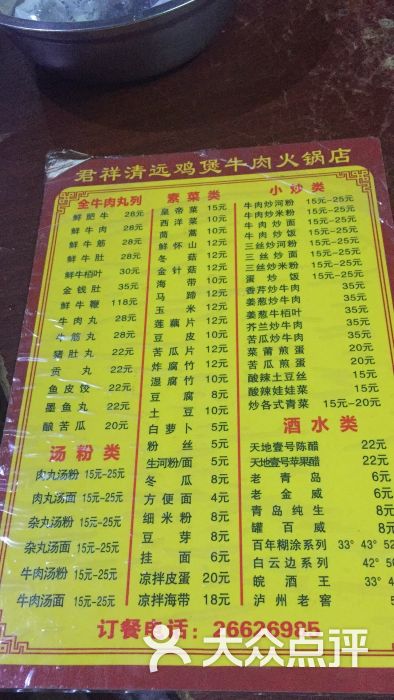 君祥清远鸡煲牛肉火锅店
全牛肉丸列
鲜肥牛 28元
鲜牛肉 28元
鲜牛筋 28元
鲜牛肚 28元
鲜牛栢叶 30元
金钱肚 35元
鲜牛鞭 118元
牛肉丸 28元
牛筋丸 28元
猪肚丸 22元
贡丸 22元
鱼皮饺 22元
墨鱼丸 22元
酿苦瓜 20元
汤粉类
肉丸汤粉 15元-25元
肉丸汤面 15元-25元
杂丸汤粉 15元-25元
杂丸汤面 15元-25元
牛肉汤粉 15元-25元
牛肉汤面 15元-25元
素菜类
皇帝菜 15元
西洋菜 10元
茼蒿 12元
鲜怀山 12元
冬菇 12元
金针菇 12元
海带 10元
马蹄 12元
玉米 12元
莲藕片 12元
豆皮 10元
苦瓜片 12元
炸腐竹 12元
湿腐竹 10元
豆腐 8元
土豆 10元
白萝卜 5元
粉丝 5元
生河粉/面 5元
冬瓜 8元
方便面 4元
细米粉 8元
豆芽 8元
挂面 6元
凉拌皮蛋 20元
凉拌海带 18元
小炒类
牛肉炒河粉 15元-25元
牛肉炒米粉 15元-25元
牛肉炒面 15元-25元
牛肉炒饭 15元-25元
三丝炒河粉 15元-25元
三丝炒面 15元-25元
三丝炒米粉 15元-25元
蛋炒饭 15元-25元
香芹炒牛肉 35元
姜葱炒牛肉 35元
姜葱炒牛栢叶 35元
芥兰炒牛肉 35元
苦瓜炒牛肉 35元
菜莆煎蛋 20元
苦瓜煎蛋 20元
酸辣土豆丝 20元
酸辣娃娃菜 20元
炒各式青菜 15元-20元
酒水类
天地壹号陈醋 22元
天地壹号苹果醋 22元
老青岛 6元
老金威 6元
青岛纯生 8元
罐百威 8元
百年糊涂系列 33° 43° 52
白云边系列 42° 5
皖酒王 33°
泸州老窖
订餐电话：26626985
大众点评